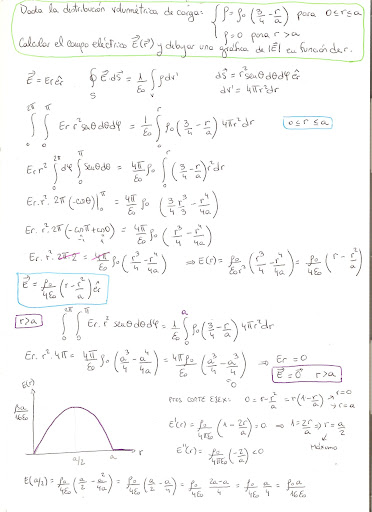 Dada la distribución volumétrica de carga: { ρ = ρ₀ (3/4 - r/a) para 0 ≤ r ≤ a
ρ = 0 para r > a
Calcular el campo eléctrico E⃗(r⃗) y dibujar una gráfica de |E⃗| en función de r.
E⃗ = Er êr ∮_S E⃗·dS⃗ = 1/ε₀ ∫ ρ dv' dS⃗ = r² senθ dθ dφ êr
dv' = 4πr² dr
∫₀^2π ∫₀^π Er r² senθ dθ dφ = 1/ε₀ ∫₀^r ρ₀ (3/4 - r/a) 4πr² dr 0 ≤ r ≤ a
Er r² ∫₀^2π dφ ∫₀^π senθ dθ = 4π/ε₀ ρ₀ ∫₀^r (3/4 - r/a) r² dr
Er. r². 2π (-cosθ)|₀^π = 4π/ε₀ ρ₀ (3/4 r³/3 - r⁴/4a)
Er. r². 2π (-cosπ + cos0) = 4π/ε₀ ρ₀ (r³/4 - r⁴/4a)
Er. r². 2π·2 = 4π/ε₀ ρ₀ (r³/4 - r⁴/4a) ⇒ E(r) = ρ₀/ε₀r² (r³/4 - r⁴/4a) = ρ₀/4ε₀ (r - r²/a)
E⃗ = ρ₀/4ε₀ (r - r²/a) êr
r > a ∫₀^2π ∫₀^π Er. r² senθ dθ dφ = 1/ε₀ ∫₀^a ρ₀ (3/4 - r/a) 4πr² dr
Er. r². 4π = 4π/ε₀ ρ₀ (a³/4 - a⁴/4a) = 4πρ₀/ε₀ (a³/4 - a³/4) ⇒ Er = 0
=0
E⃗ = 0⃗ r > a
E(r)
PTOS CORTE EJEX: 0 = r - r²/a = r(1 - r/a) → r=0
→ r=a
ρ₀a/16ε₀
E'(r) = ρ₀/4πε₀ (1 - 2r/a) = 0 ⇒ 1 = 2r/a ⇒ r = a/2
Máximo
E''(r) = ρ₀/4πε₀ (-2/a) < 0
a/2 a r
E(a/2) = ρ₀/4ε₀ (a/2 - a²/4/a) = ρ₀/4ε₀ (a/2 - a/4) = ρ₀/4ε₀ 2a-a/4 = ρ₀/4ε₀ a/4 = ρ₀a/16ε₀